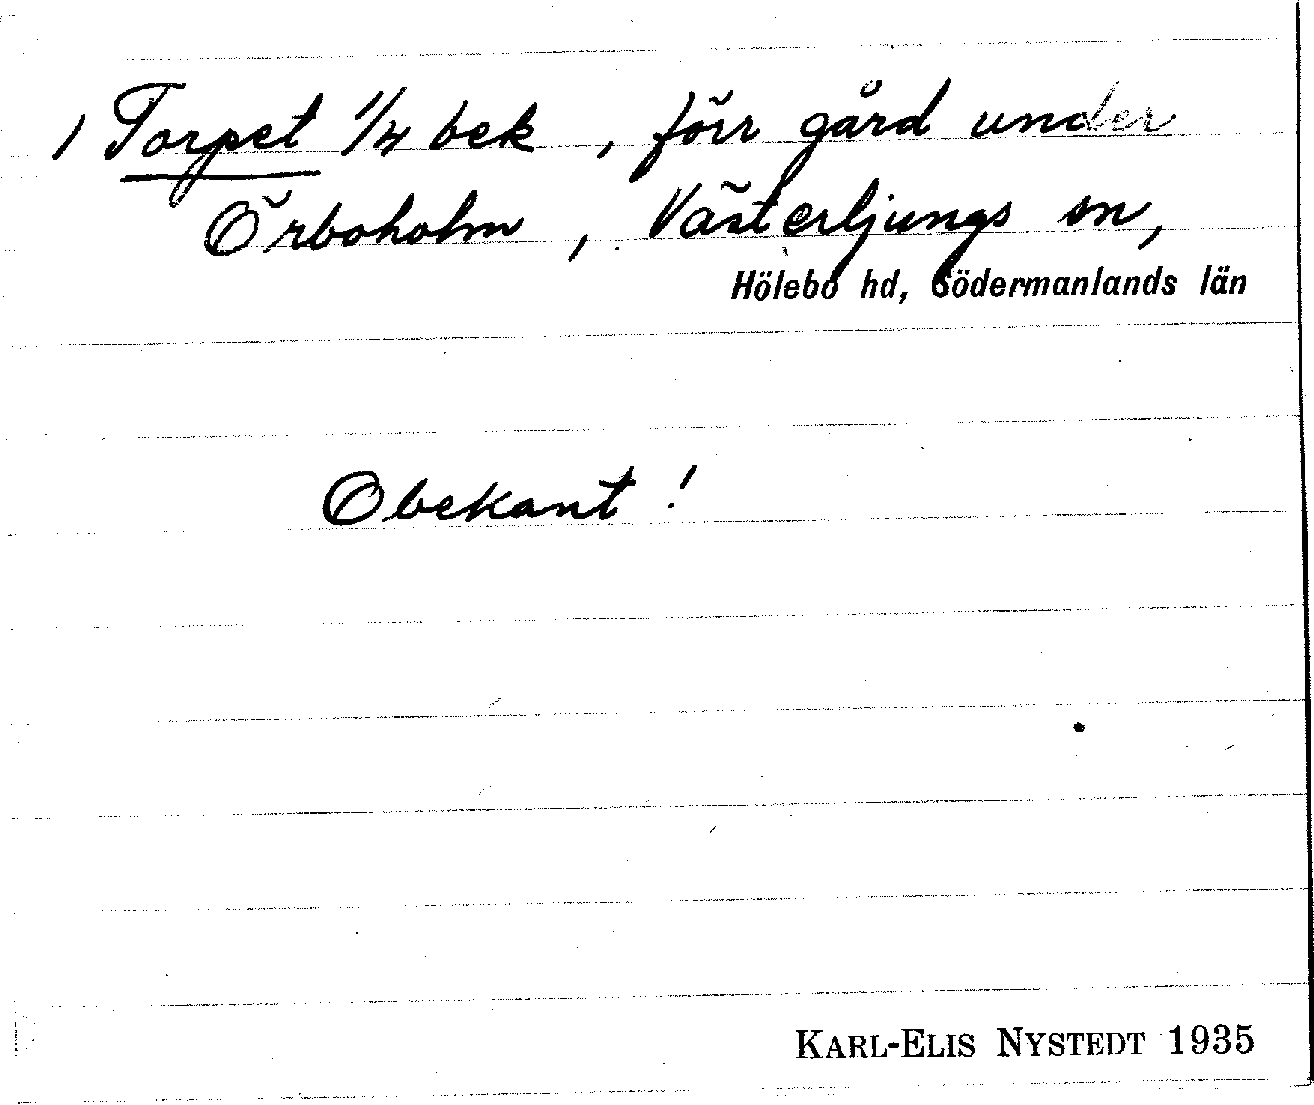 / Torpet 1/4 bek , förr gård under
Örboholm , Västerljungs sn,
Hölebo hd, Södermanlands län
Obekant !
KARL-ELIS NYSTEDT 1935